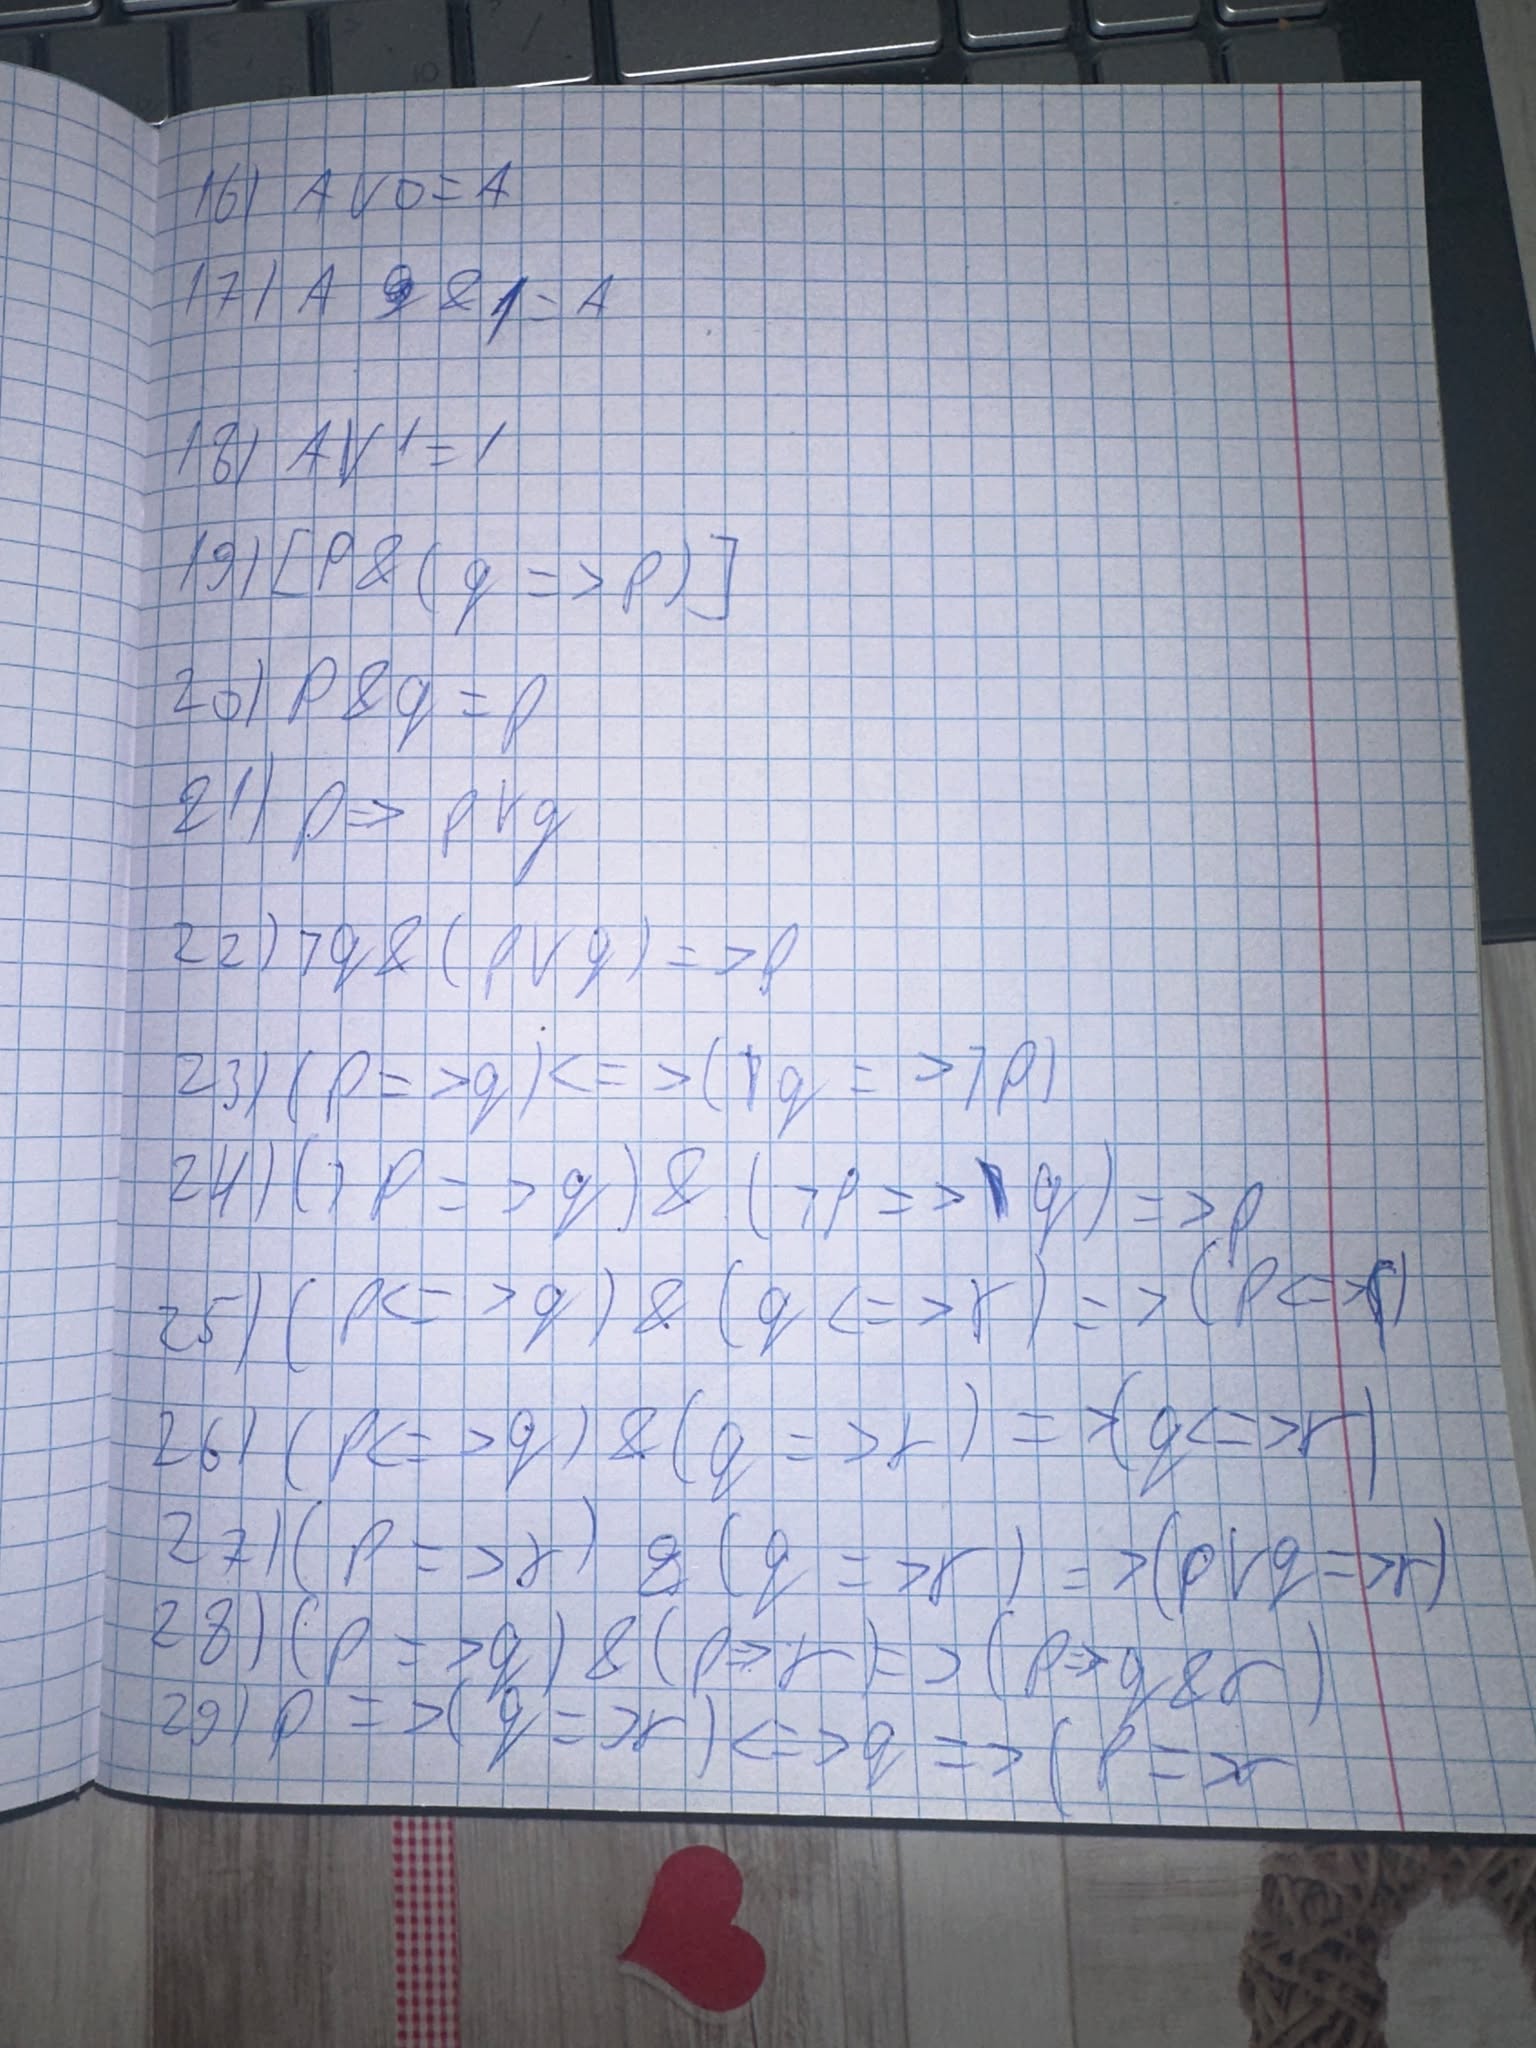 16) A V 0 = A
17) A & 1 = A
18) A V 1 = 1
19) [P & (q => p)]
20) P & q = p
21) p => p V q
22) ㄱq & (p V q) => p
23) (P => q) <=> (ㄱq => ㄱP)
24) (ㄱP => q) & (ㄱP => ㄱq) => p
25) (P <=> q) & (q <=> r) => (P <=> r)
26) (P <=> q) & (q => r) => (q <=> r)
27) (P => r) & (q => r) => (p V q => r)
28) (p => q) & (p => r) => (p => q & r)
29) p => (q => r) <=> q => (P => r